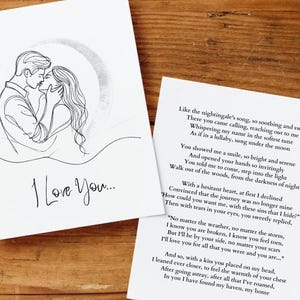 I Love You...
Like the nightingale's song, so soothing and
There you came calling, reaching out to me
Whispering my name in the softest tune
As if in a lullaby, sung under the moon
You showed me a smile, so bright and serene
And opened your hands so invitingly
You told me to come, step into the light
Walk out of the woods, from the darkness of night
With a hesitant heart, at first I declined
Convinced that the journey was no longer mine
"How could you want me, with these sins that I hide"
Then with tears in your eyes, you sweetly replied,
"No matter the weather, no matter the storm,
I know you are broken, I know you feel torn,
But I'll be by your side, no matter your scars
I'll love you for all that you were and you are..."
And so, with a kiss you placed on my head,
I leaned ever closer, to feel the warmth of your chest
After going astray, after all that I've roamed,
In you I have found my haven, my home